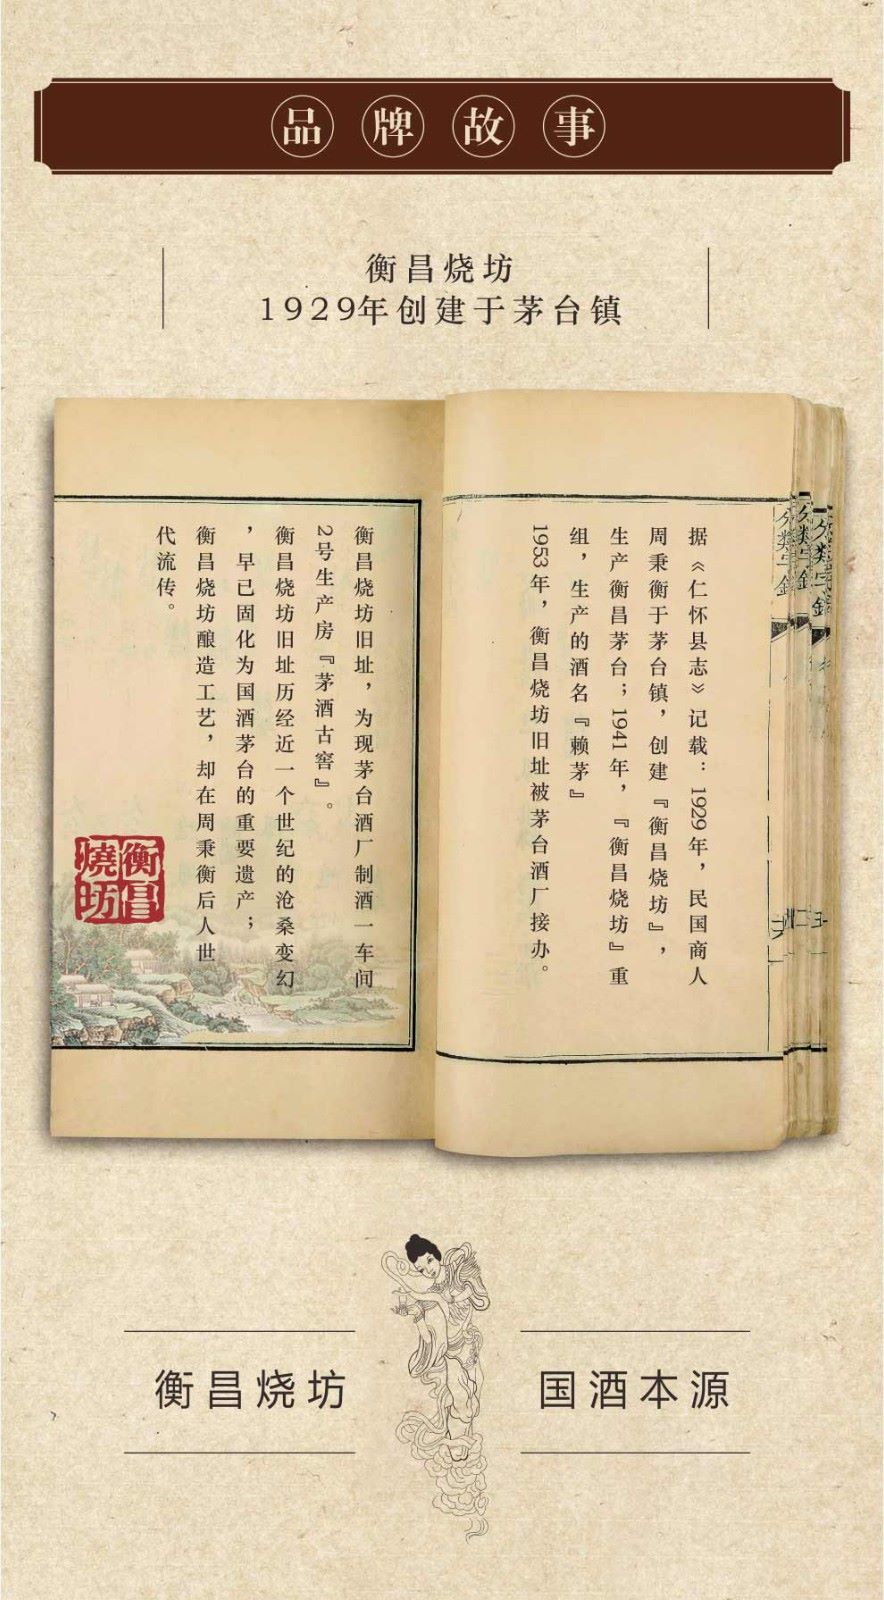 品牌故事
衡昌烧坊
1929年创建于茅台镇
据《仁怀县志》记载：1929年，民国商人
周秉衡于茅台镇，创建『衡昌烧坊』，
生产衡昌茅台；1941年，『衡昌烧坊』重
组，生产的酒名『赖茅』
1953年，衡昌烧坊旧址被茅台酒厂接办。
衡昌烧坊旧址，为现茅台酒厂制酒一车间
2号生产房『茅酒古窖』。
衡昌烧坊旧址历经近一个世纪的沧桑变幻
，早已固化为国酒茅台的重要遗产；
衡昌烧坊酿造工艺，却在周秉衡后人世
代流传。
衡昌
燒坊
衡昌烧坊
国酒本源